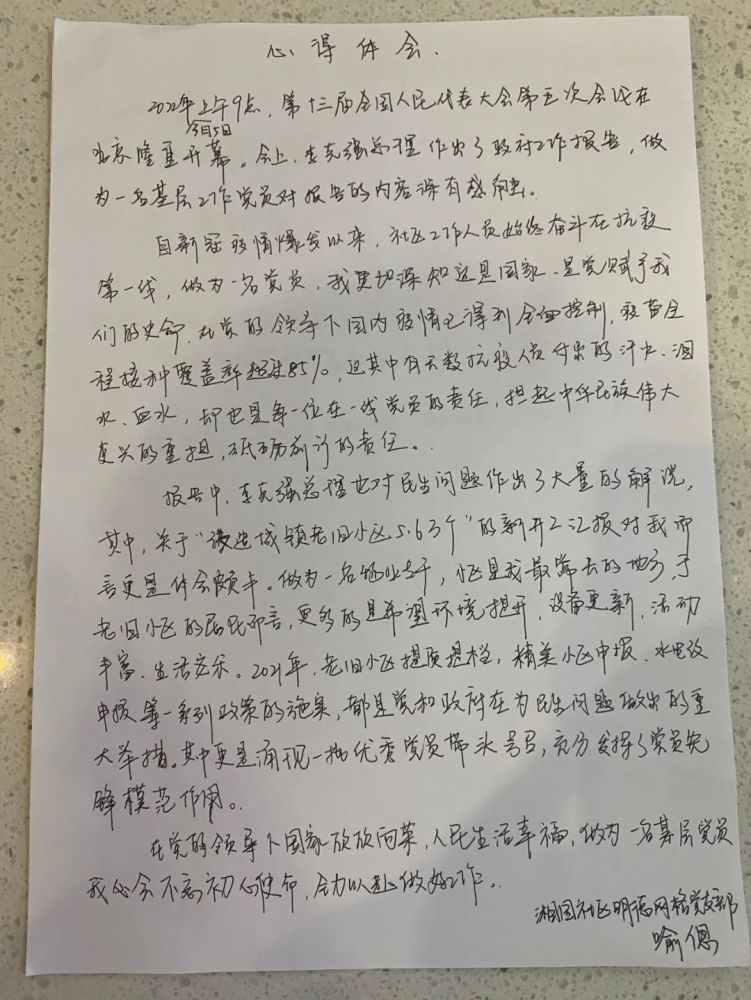 心得体会.
2022年上午9点，第十三届全国人民代表大会第五次会议在
3月5日
北京隆重开幕。会上，李克强总理作出了政府工作报告，做
为一名基层工作党员对报告的内容深有感触。
自新冠疫情爆发以来，社区工作人员始终奋斗在抗疫
第一线，做为一名党员，我更加深知这是国家、是党赋予我
们的使命.在党的领导下国内疫情已得到全面控制，疫苗全
程接种覆盖率超过85%，这其中有无数抗疫人员付出的汗水、泪
水、血水，却也是每一位在一线党员的责任，担起中华民族伟大
复兴的重担，砥砺前行的责任。.
报告中，李克强总理也对民生问题作出了大量的解说，
其中，关于“改造城镇老旧小区5.6万个”的新开工汇报对我而
言更是体会颇丰。做为一名物业，小区是我最常去的地方，于
老旧小区的居民而言，更多的是希望环境提升，设备更新，活动
丰富、生活安乐。2021年，老旧小区提质提档，精美小区申报、水电改
申报等一系列政策的施实，都是党和政府在为民生问题做出的重
大举措。其中更是涌现一批优秀党员带头号召，充分发挥了党员先
锋模范作用。.
在党的领导下国家欣欣向荣，人民生活幸福，做为一名基层党员
我必会不忘初心使命，全力以赴做好工作。.
湘园社区明德网格党支部
喻